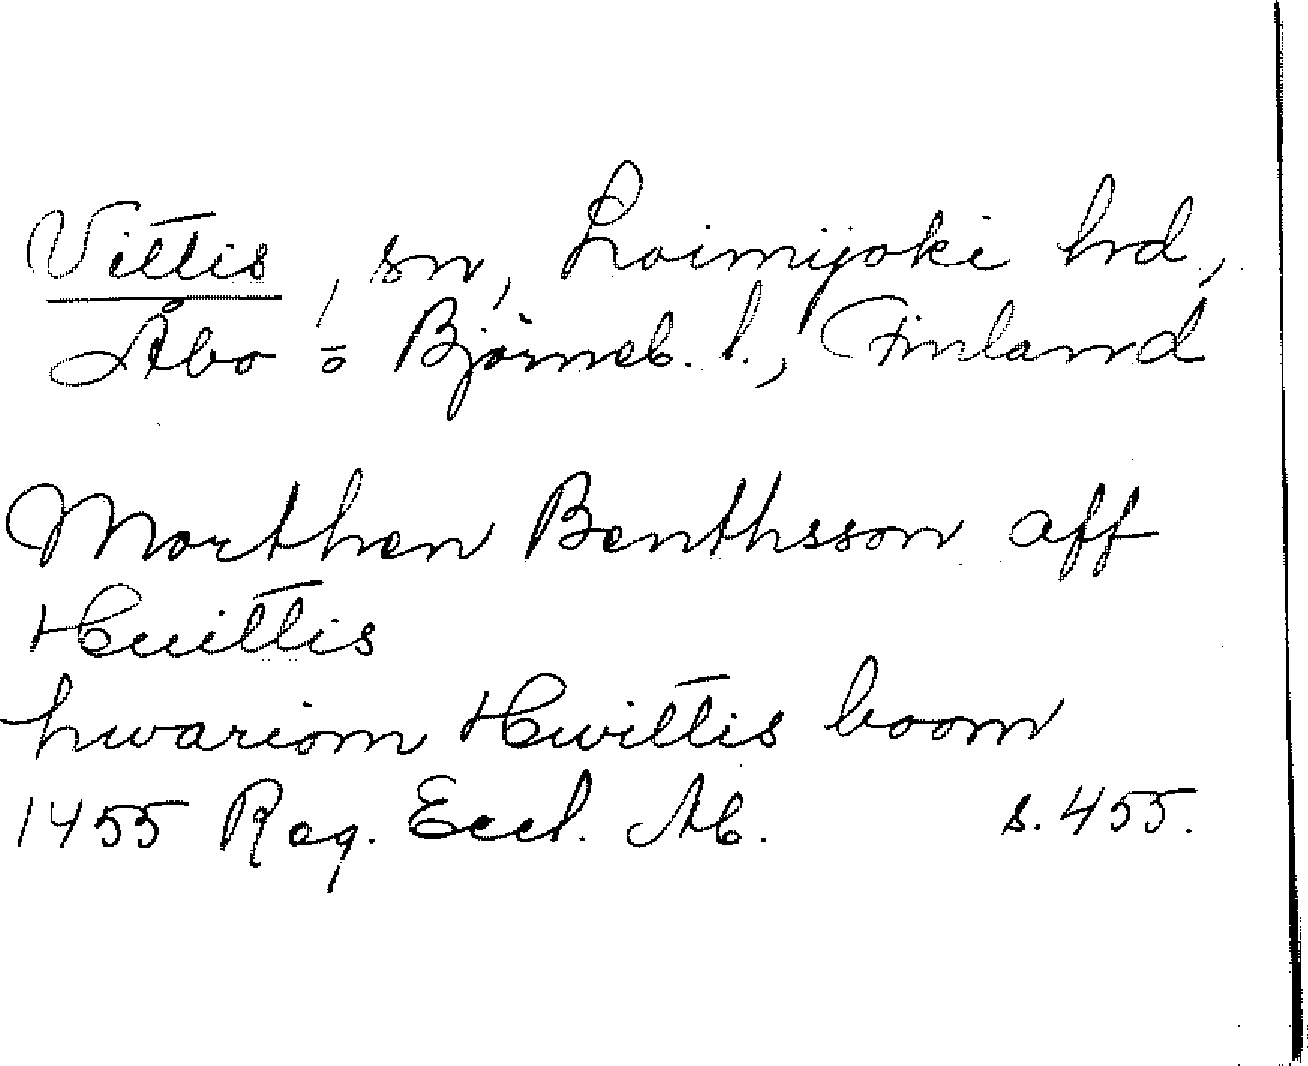 Vittis, sn, Loimijoki hrd,
Åbo = Björneb. l., Finland
Morthen Benthsson aff
Huittis
hwariom Hwittis boom
1455 Reg. Eccl. Ab. s. 455.